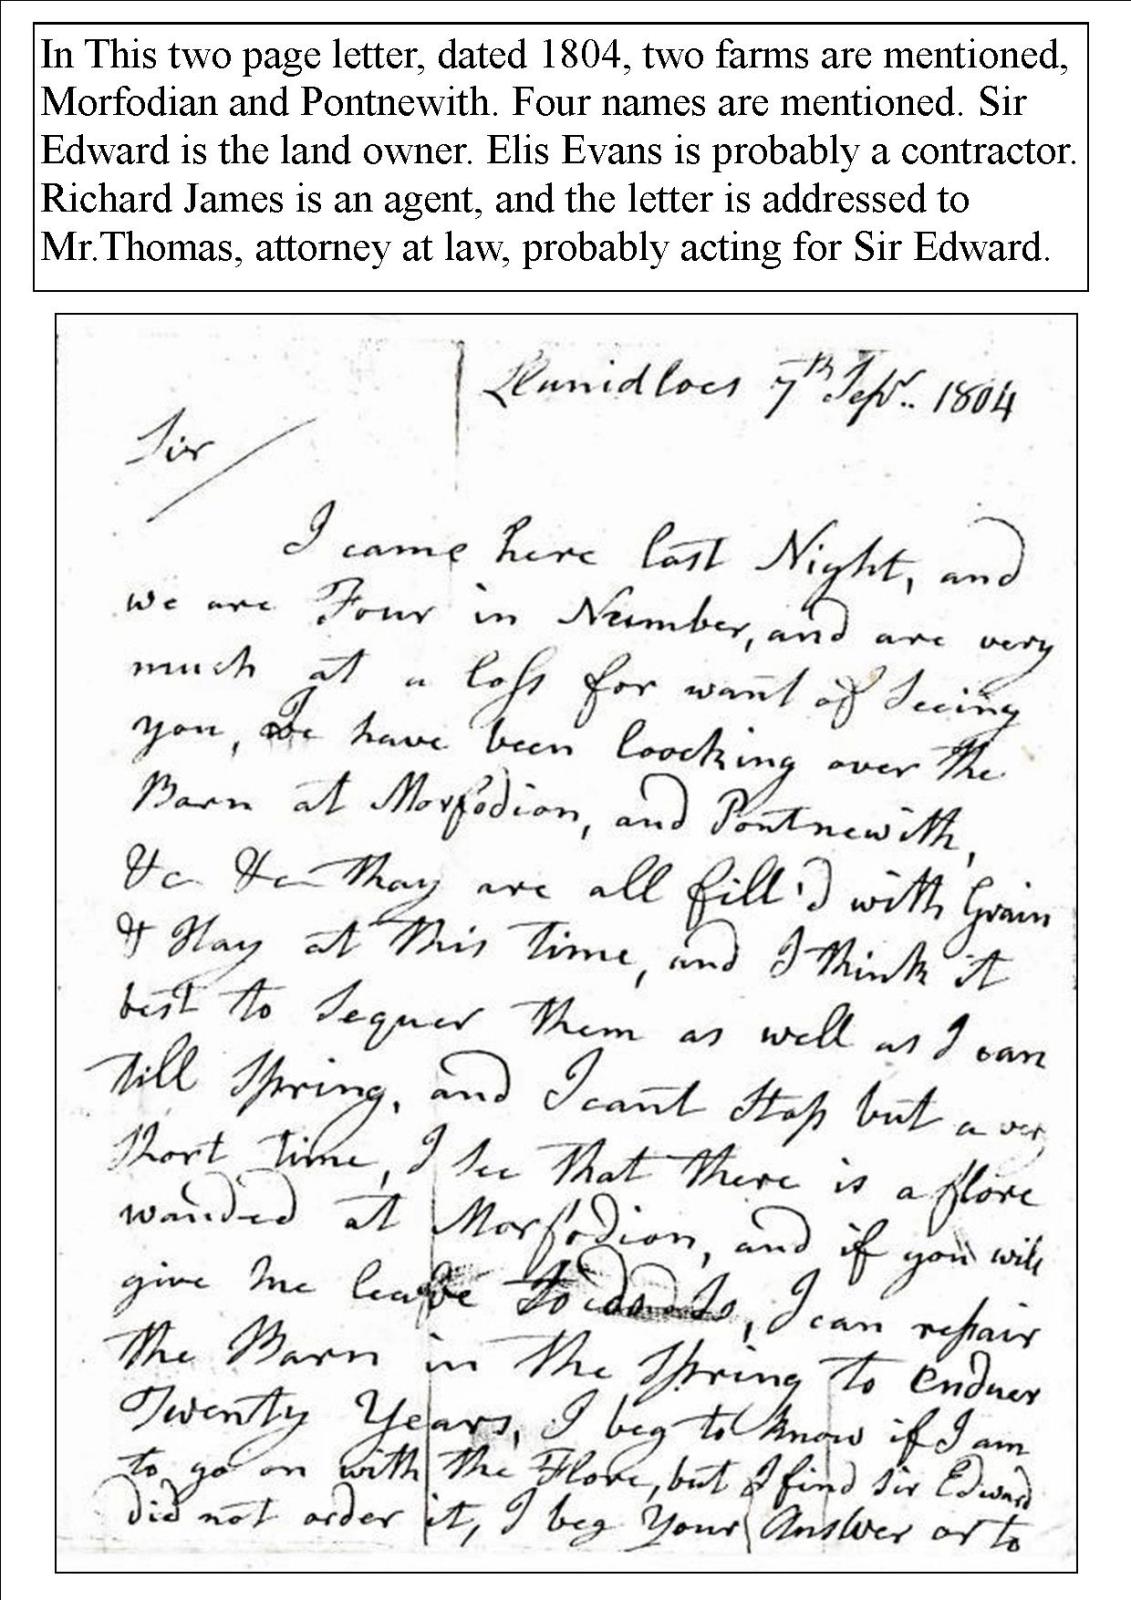 In This two page letter, dated 1804, two farms are mentioned,
Morfodian and Pontnewith. Four names are mentioned. Sir
Edward is the land owner. Elis Evans is probably a contractor.
Richard James is an agent, and the letter is addressed to
Mr.Thomas, attorney at law, probably acting for Sir Edward.
Llanidloes 7th Sepr. 1804
Sir
I came here last Night, and
we are Four in Number, and are very
much at a loss for want of Seeing
you, We have been loocking over the
Barn at Morfodion, and Pontnewith,
&c &c thay are all fill'd with Grain
& Hay at this time, and I think it
best to Sequer them as well as I can
till Spring, and I cant Stop but a ver
Short time, I See that there is a flore
wanded at Morfodion, and if you will
give me leave to do So, I can repair
the Barn in the Spring to Enduer
Twenty Years, I beg to know if I am
to go on with the Flore, but I find Sir Edward
did not order it, I beg Your Answer or to